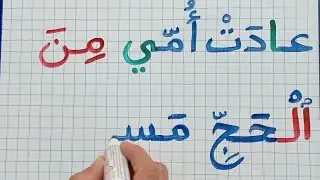 عادَتْ أُمّي مِنَ
ٱلْحَجِّ مَسـ